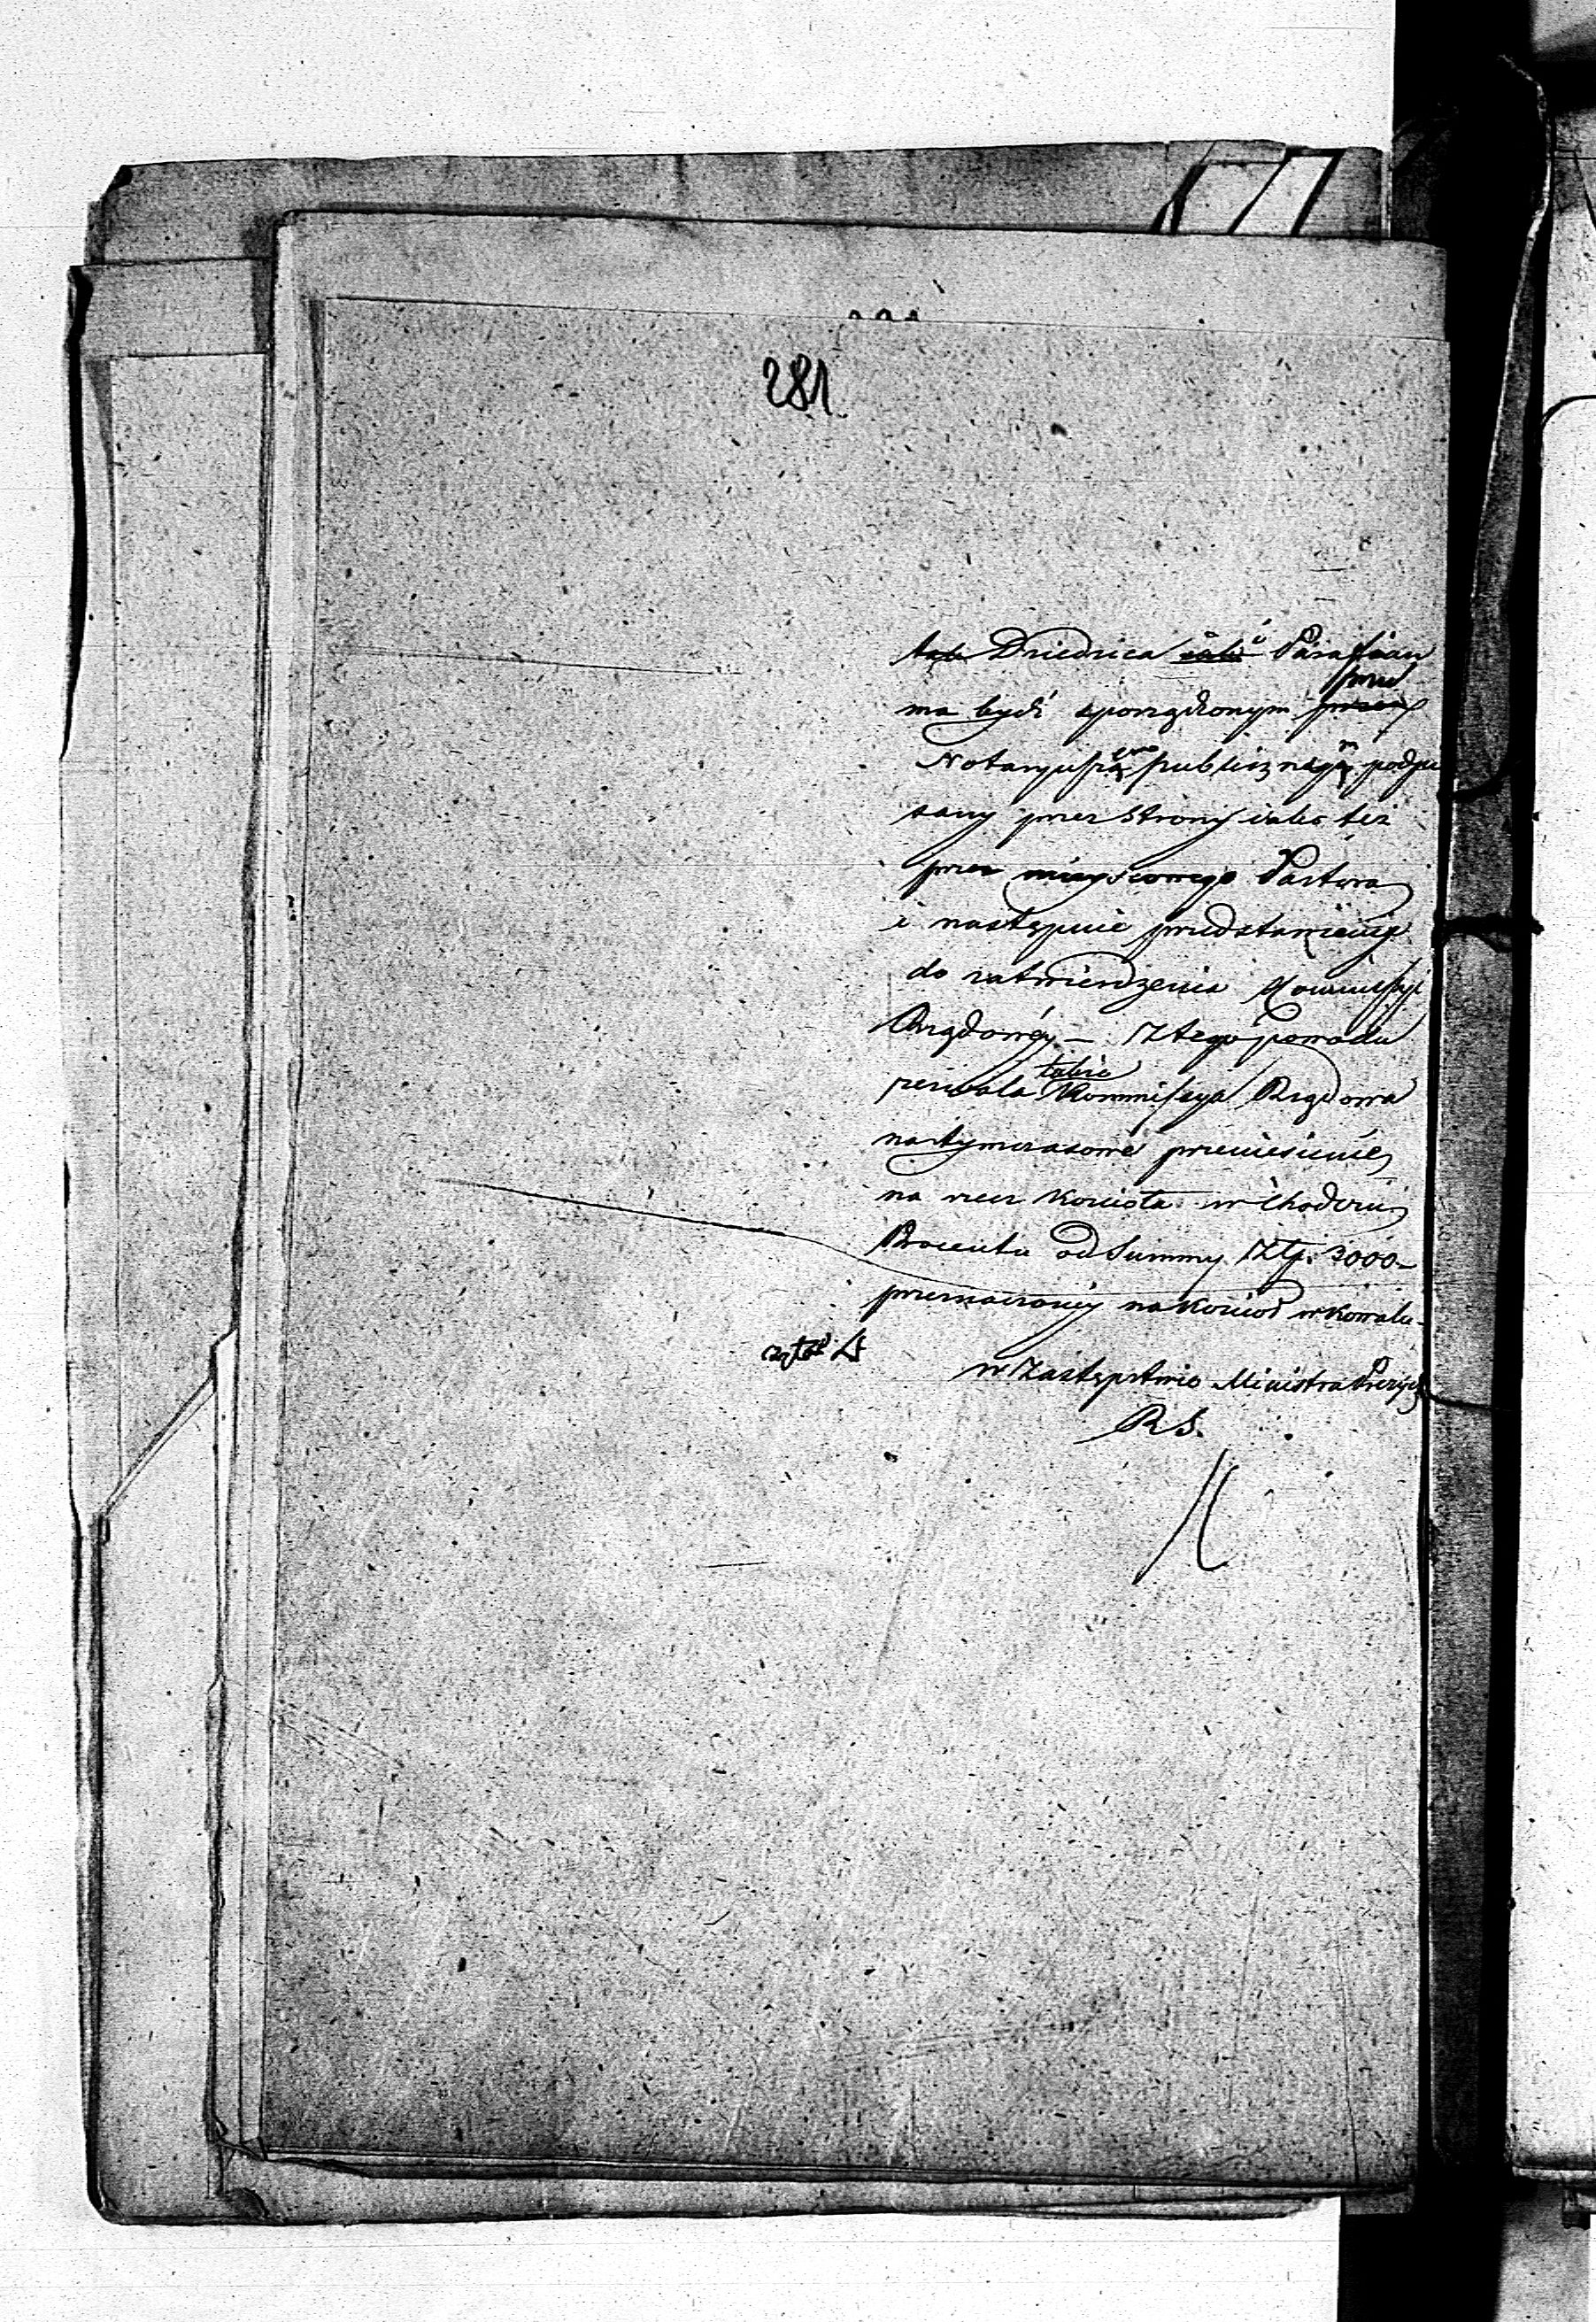 281
Dziedzica iako i Parafian
ma bydź sporządzonym przed przez
Notaryuszem publicznym podpi
sany przez Strony iako też
przez mieyscowego Pastora
i następnie przedstawiony
do zatwierdzenia Kommissyi
Rządowéy – Z tego powodu
zezwala także Kommissya Rządowa
na tymczasowe przeniesienie
na rzecz Kościoła w Chodczu
Procentu od Summy Złp. 3000 –
przeznaczonéy na Kościoł w Kowalu –
w Zastępstwie Ministra Prezyd
R S.